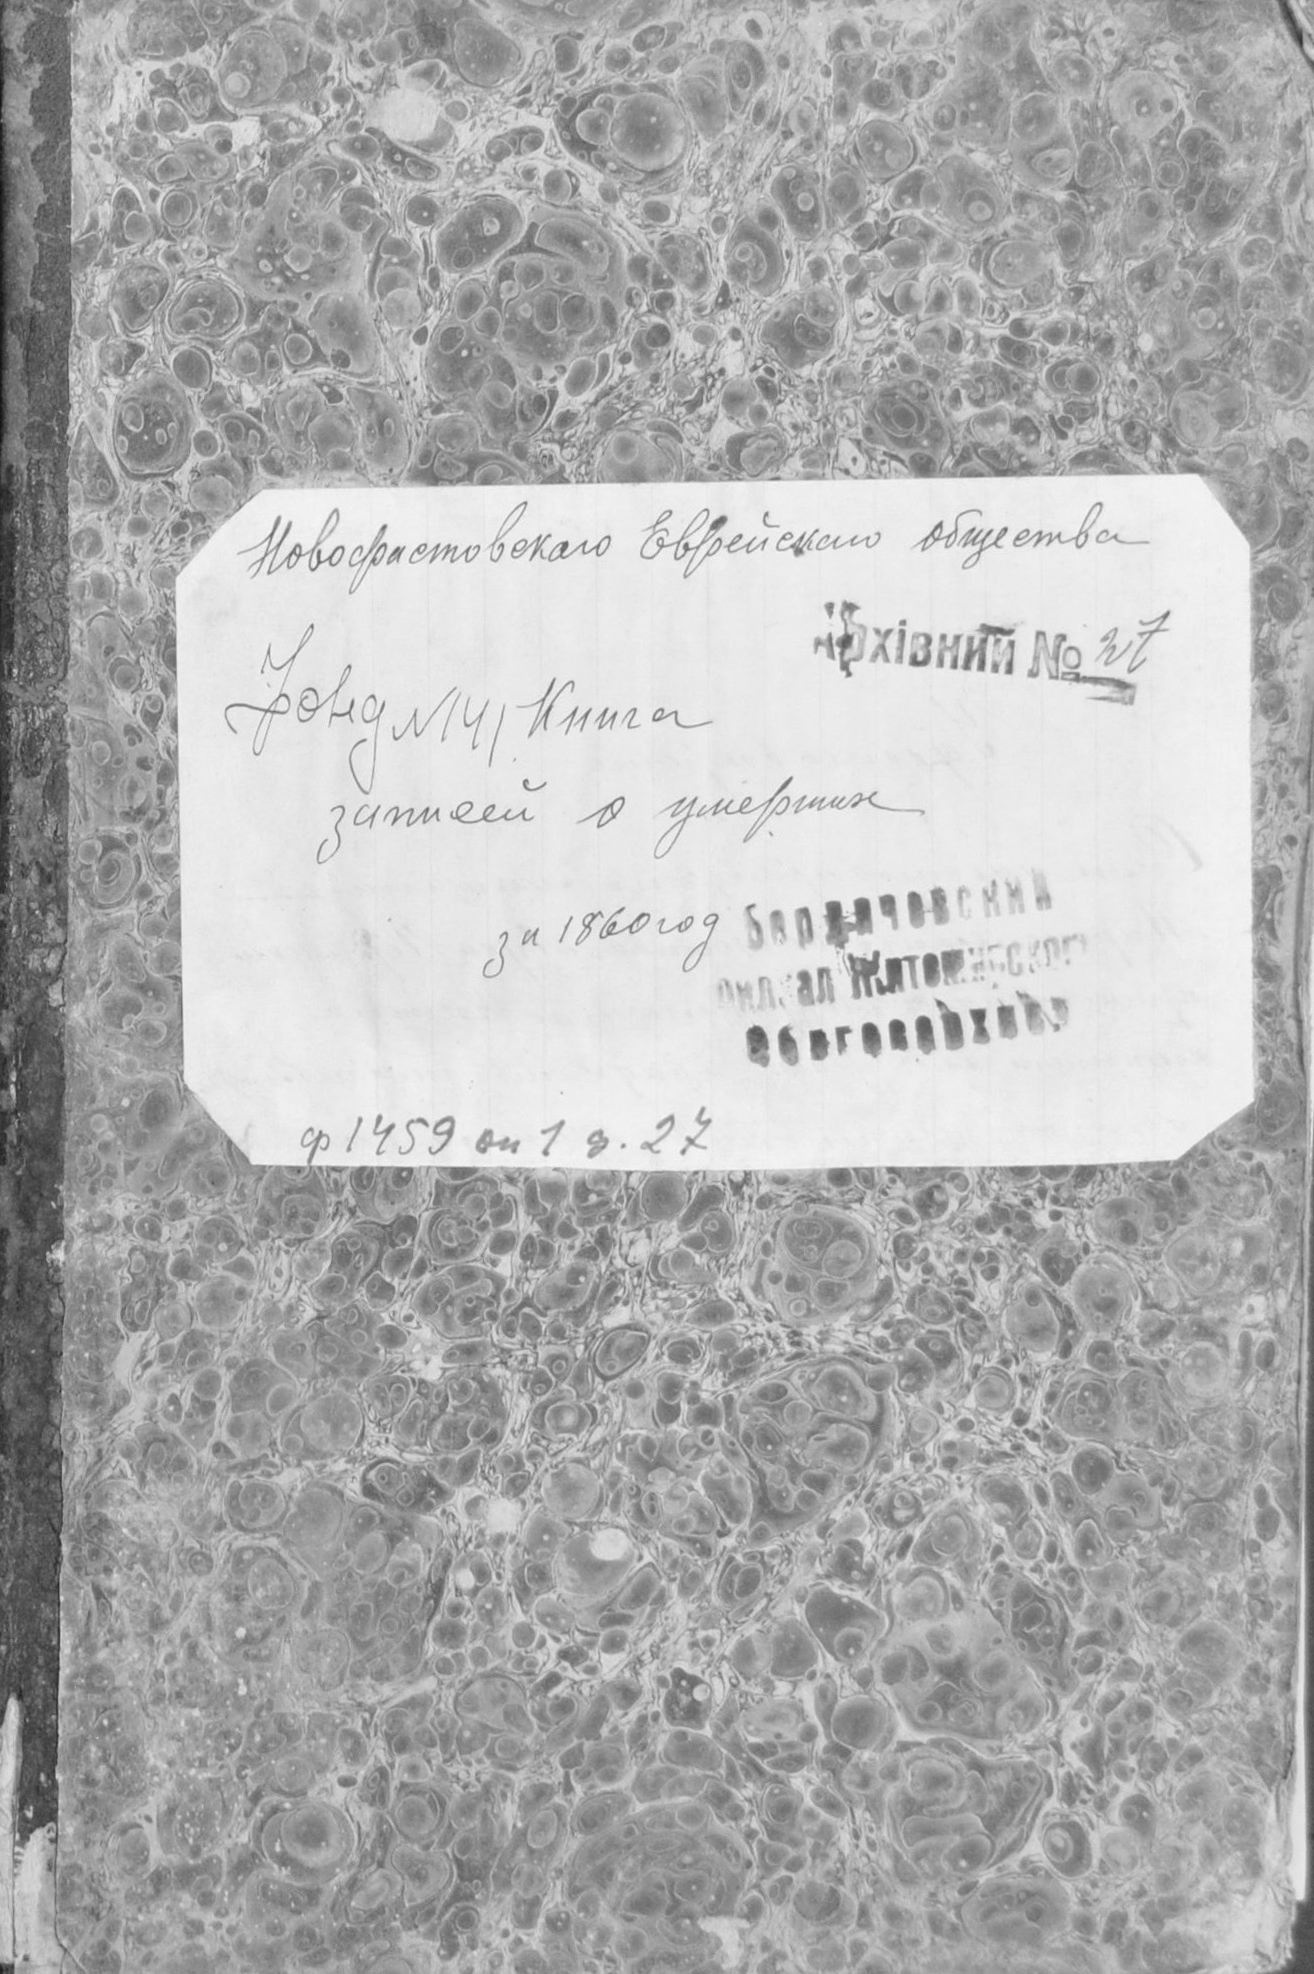 Новофастовскаго Еврейскаго общества
Архівний № 27
Фонд № 41 Книга
записей о умерших
за 1860 год
Бердичовский
филиал Житомирского
Облгосархива
ф 1459 оп 1 д. 27